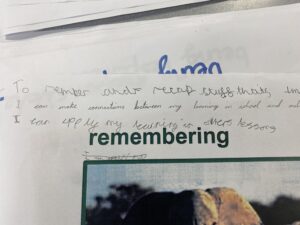 To rember and recap stuff thats im
I can make connections between my learning in school and out
I can apply my learning in others lessons
remembering